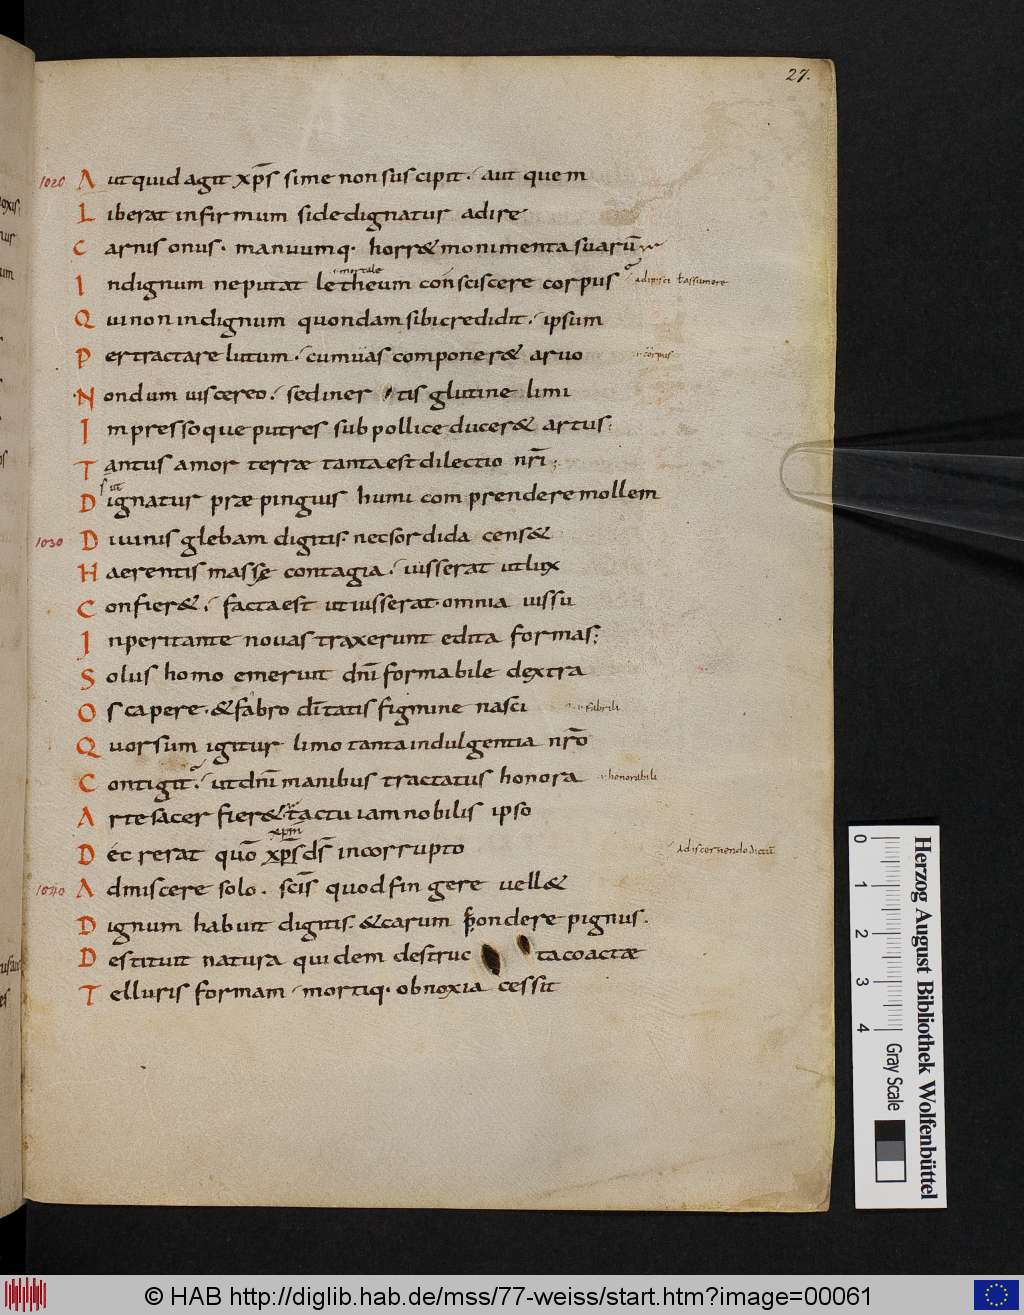 27.
1020 Aut quid agit xp̄s si me non suscipit. aut quem
Liberat infirmum si dedignatur adire
Carnis onus. manuumq. horr& monimenta suarū
mortale
Indignum ne putat letheum consciscere corpus adipisci ł assumere
Qui non indignum quondam sibi credidit. ipsum
Pertractare lutum. cum uas componer& aruo corpus
Nondum uiscereo. sed iner tis glutine limi
Impressoque putres sub pollice ducer& artus.
Tantus amor terræ tanta est dilectio nr̄i;
Dignatur præpinguis humi comprendere mollem
1030 Diuinis glebam digitis. nec sordida cens&
Haerentis masse contagia. iusserat ut lux
Confier&. facta est ut iusserat. omnia iussu
Inperitante nouas traxerunt edita formas.
Solus homo emeruit dn̄i formabile dextra
Os capere. & fabro dītatis figmine nasci fabrili
Quorsum igitur limo tanta indulgentia nr̄o
Contigit. ut dn̄i manibus tractatus honora honorabili
Arte sacer fier& tactu iam nobilis ipso
xpm̄
Decrerat quō xp̄s ds̄ incorrupto a discernendo dictū
1040 Admiscere solo. scīs quod fingere uell&
Dignum habuit digitis. & carum p̄ondere pignus.
Destituit natura quidem destruc ta coactæ
Telluris formam mortiq. obnoxia cessit
0 1 2 3 4
Gray Scale
Herzog August Bibliothek Wolfenbüttel
© HAB http://diglib.hab.de/mss/77-weiss/start.htm?image=00061